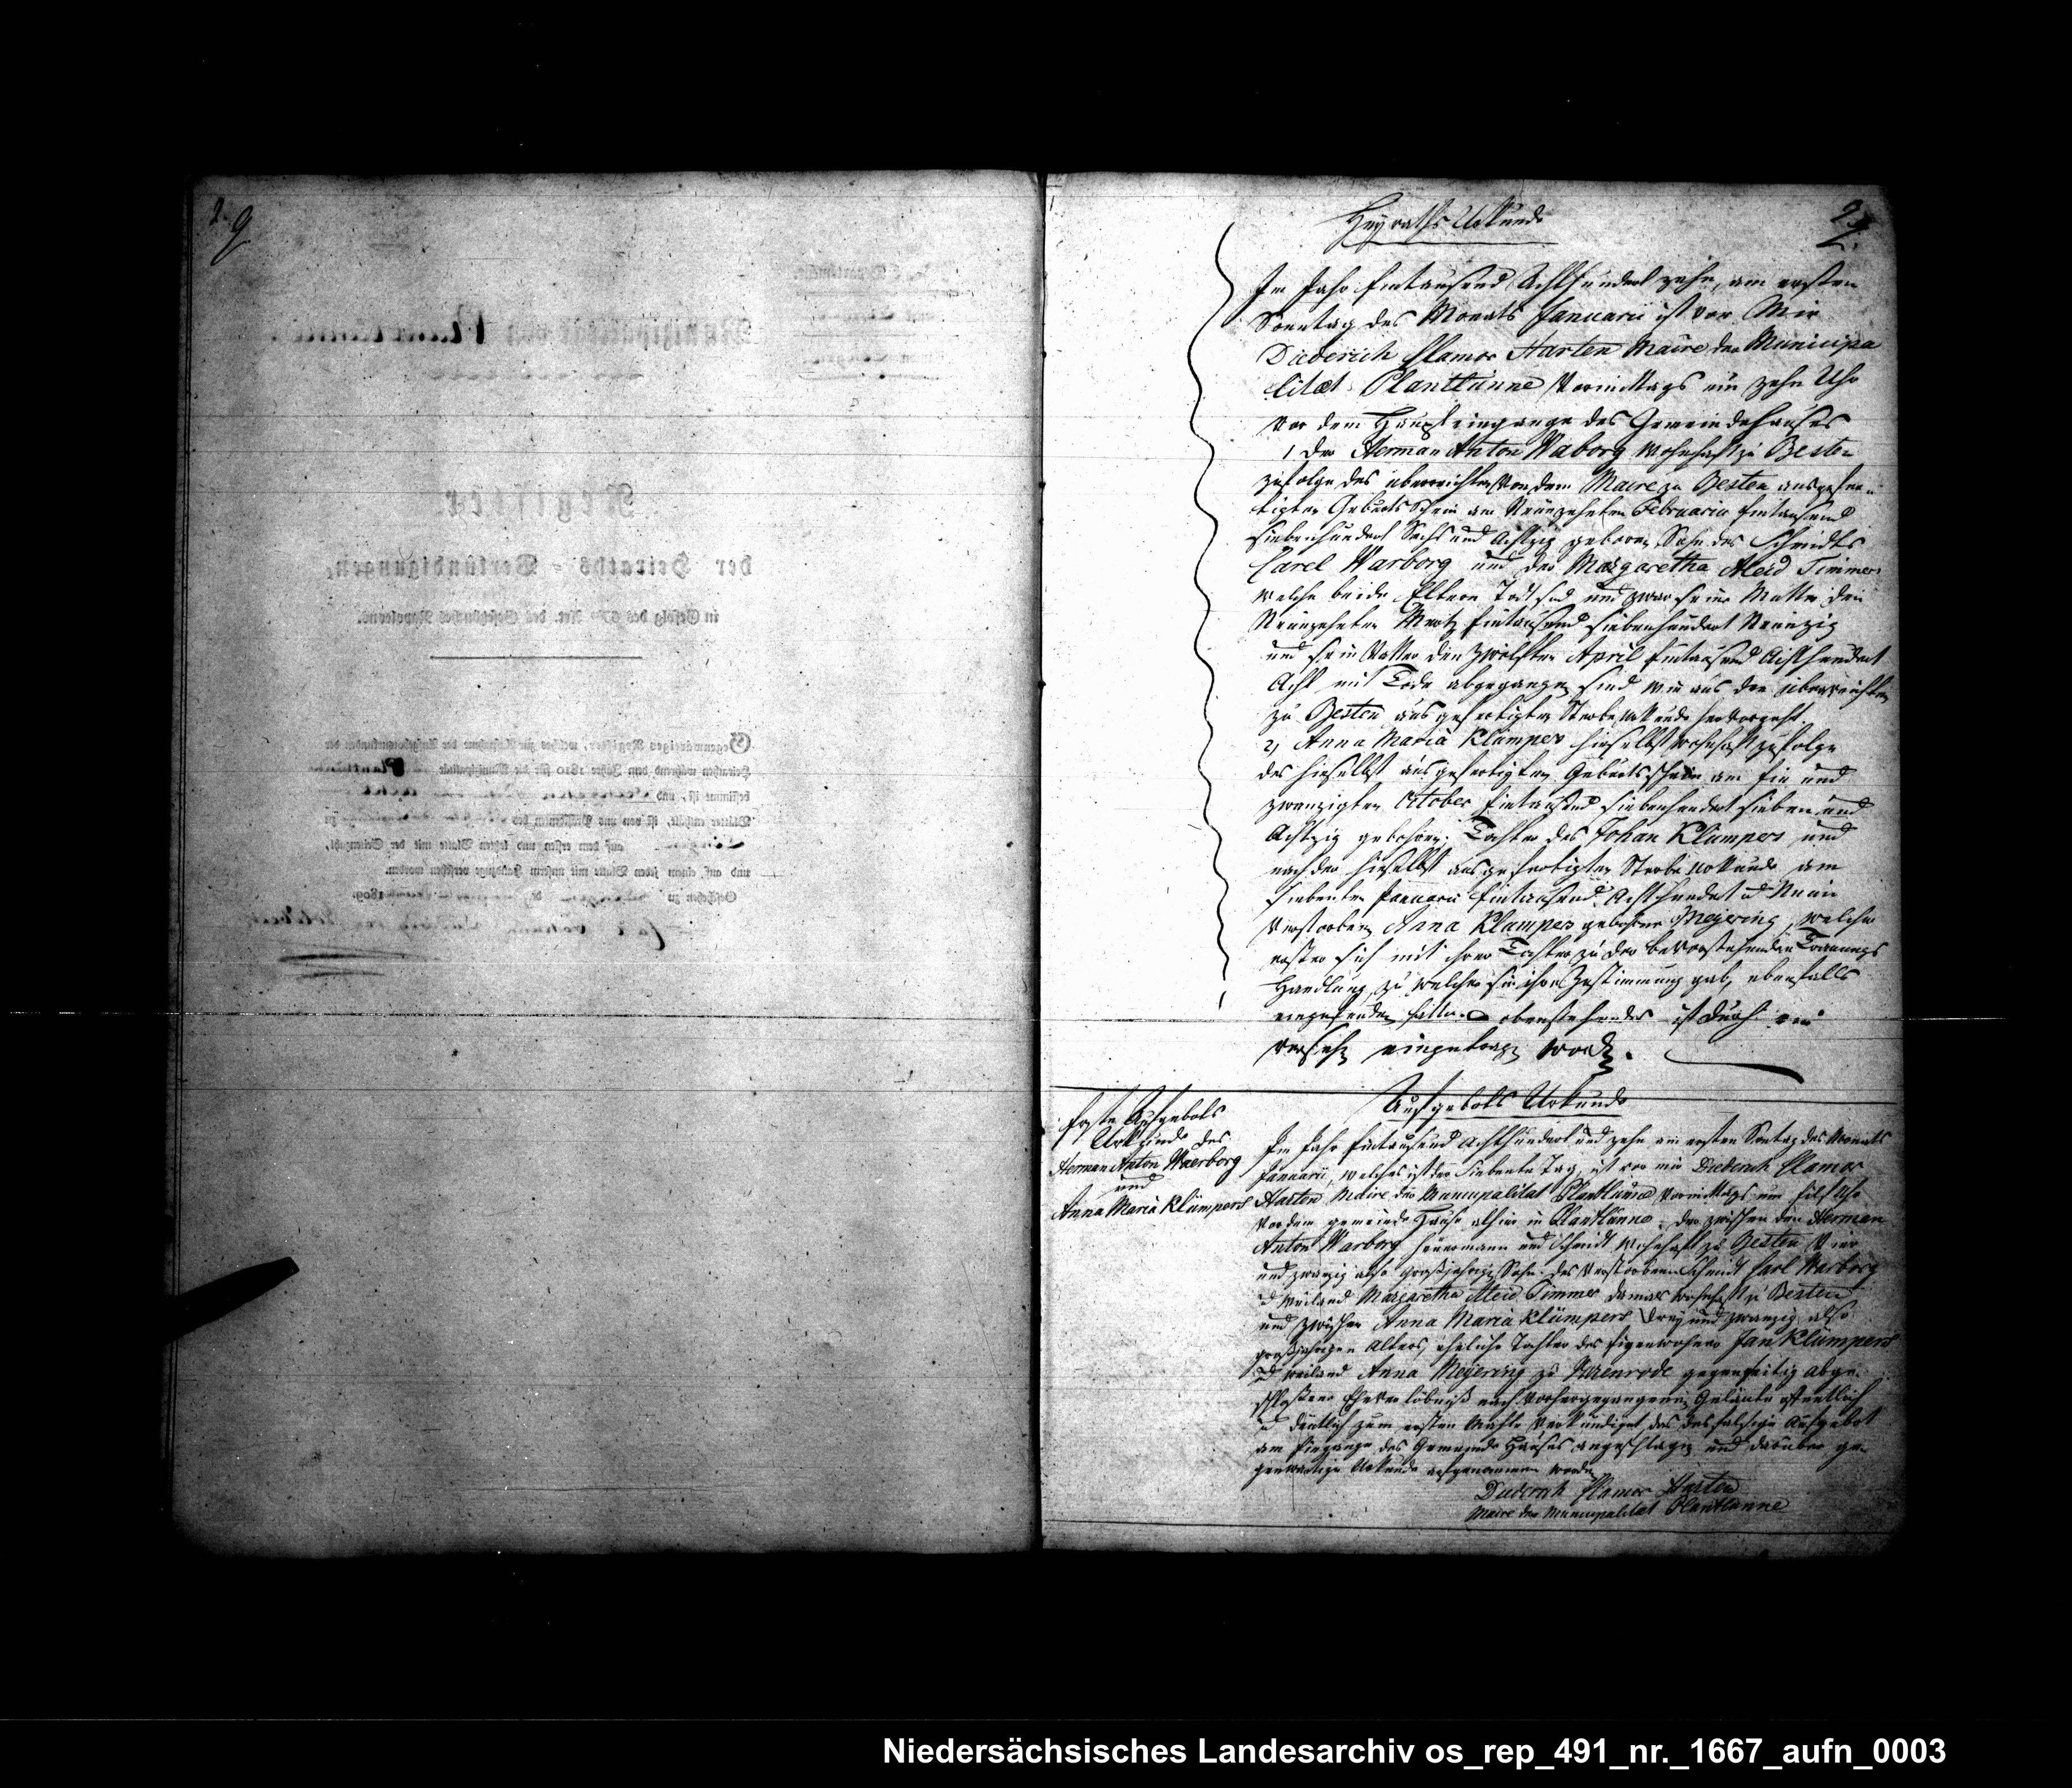 2. 9
Heyraths Urkunde
2
Im Jahr Eintausend Achthundert zehn, am ersten
Sonntag des Monats Januarii ist vor Mir
Diederich Clamor Harten Maire der Municipa
litæt Plantlünne Vormittags um zehn Uhr
vor dem Haupteingange des Gemeindehauses
1, der Herman Anton Waborg wohnhaft zu Besten
zufolge des überreichten von dem Maire zu Besten ausgefer-
tigten Geburts Schein am Neunzehnten Februarii Eintausend
siebenhundert Sechs und Achtzig geboren, Sohn des Schmidts
Carel Warborg und der Margaretha Aleid Timmer
welche beide Eltern Todt sind und zwar seine Mutter den
Neunzehnten Mertz Eintausend siebenhundert Neunzig
und sein Vatter den Zwölften April Eintausend Achthundert
Acht mit Tode abgegangen sind wie aus den überreichten
zu Besten ausgefertigten Sterbe Urkunde hervorgeht.
2, Anna Maria Klümper hieselbst wohnhaft zufolge
des hieselbst ausgefertigten Geburtsschein am Ein und
zwanzigten October Eintausend siebenhundert sieben und
Achtzig gebohren. Tochter des Johan Klümpers und
nach der hieselbst ausgefertigten Sterbe Urkunde am
siebenten Januarii Eintausend Achthundert u Neun
verstorben Anna Klümper gebohrne Meyering, welcher
erster sich mit ihrer Tochter zu der bevorstehenden Trauungs
Handlung, zu welcher sie ihre Zustimmung gab, ebenfalls
eingefunden hatte. obenstehendes ist durch ein
versehn eingetragen word.
Aufgebots Urkunde
Erste Aufgebots
Urkunde des
Herman Anton Waerborg
und
Anna Maria Klümpers
Im Jahr Eintausend Achthundert und zehn am ersten Sontag des Monats
Januarii, welches ist der Siebente Tag, ist vor mir Diederich Clamor
Harten Maire der Municipalitat Plantlünne Vormittags um Eilf Uhr
vor dem gemeinde Hause alhier in Plantlünne, der zwischen den Herman
Anton Warborg Heuermann und Schmidt wohnhaft zu Besten Vier
und zwanzig also großjahrig, Sohn des Verstorbenen Schmidt Carl Warborg
u weiland Margaretha Aleid Timmer damals wohnhaft zu Besten
und zwischen Anna Maria Klümpers drey und zwanzig also
großjahrigen Alters, eheliche Tochter des Eigenwohners Jan Klümpers
u weiland Anna Meyering zu gegenseitig abge-
schloßene Eheverlöbniß nach vorhergegangenen Geläute öffentlich
u deutlich zum ersten Mahle verkündiget das desfalsige Aufgebot
am Eingange des Gemeinde Hauses angeschlagen und darüber ge-
genwärtige Urkunde aufgenommen worden
Diederich Clamor Harten
Maire der Municipalitat Plantlünne
Niedersächsisches Landesarchiv os_rep_491_nr._1667_aufn_0003